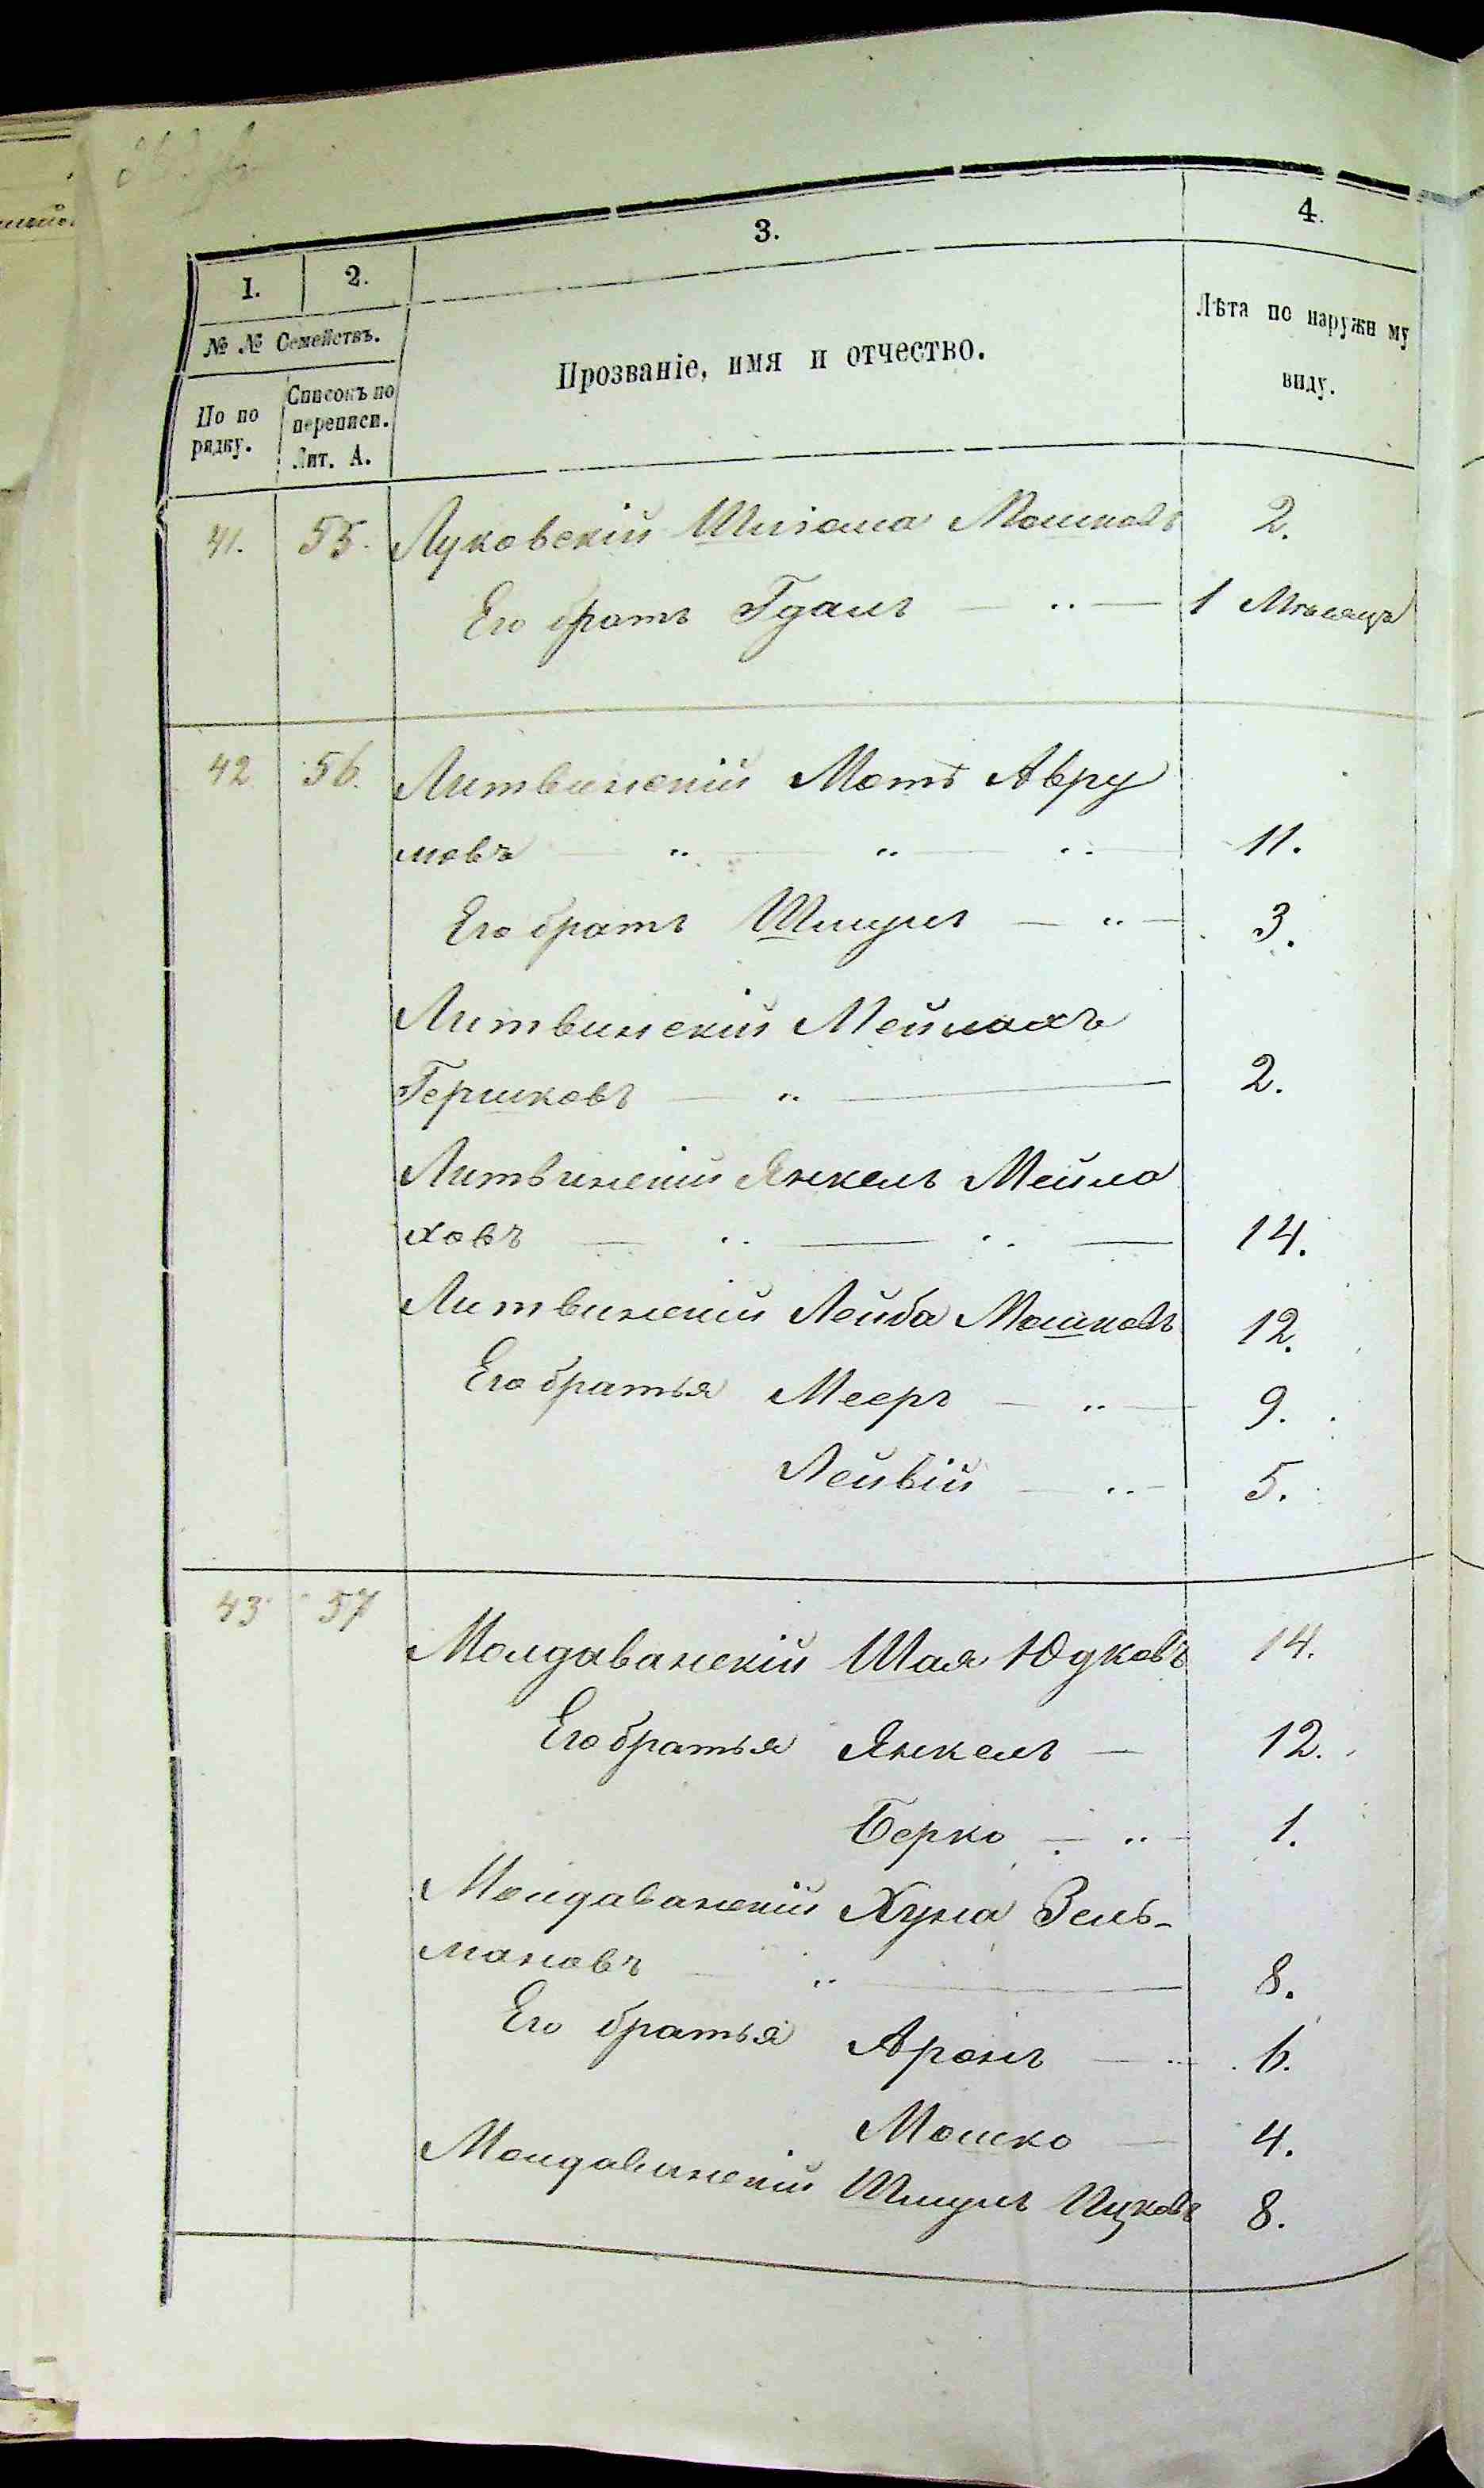 1. 2. 3. 4.
№ № Семействъ.
По по рядку.
Списокъ по переписи. Лит. А.
Прозваніе, имя и отчество.
Лѣта по наружн му виду.
41. 55. Луковскій Шліома Мошковъ 2.
Его братъ Гдаль — " — 1 Мѣсяцъ
42 56. Литвинскій Моть Авру
мовъ — " — " — " — 11.
Его братъ Шмуль — " — 3.
Литвинскій Мейлахъ
Гершковъ — " — 2.
Литвинскій Янкель Мейла
ховъ — " — " — 14.
Литвинскій Лейба Мошковъ 12.
Его братья Мееръ — " — 9.
Лейвій — " — 5.
43 57 Молдаванскій Шая Юдковъ 14.
Его братья Янкель — 12.
Берко — " — 1.
Молдаванскій Хуна Зель-
мановъ — " — 8.
Его братья Аронъ — " — 6.
Мошко — 4.
Молдаванскій Шмуль Ицковъ 8.